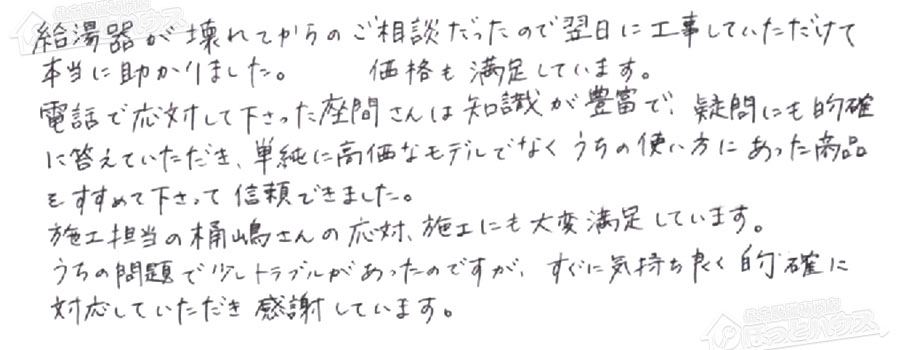 給湯器が壊れてからのご相談だったので翌日に工事していただけて
本当に助かりました。 価格も満足しています。
電話で応対して下さった座間さんは知識が豊富で、疑問にも的確
に答えていただき、単純に高価なモデルでなくうちの使い方にあった商品
をすすめて下さって信頼できました。
施工担当の桶嶋さんの応対、施工にも大変満足しています。
うちの問題で少しトラブルがあったのですが、すぐに気持ち良く的確に
対応していただき感謝しています。
ほっとハウス